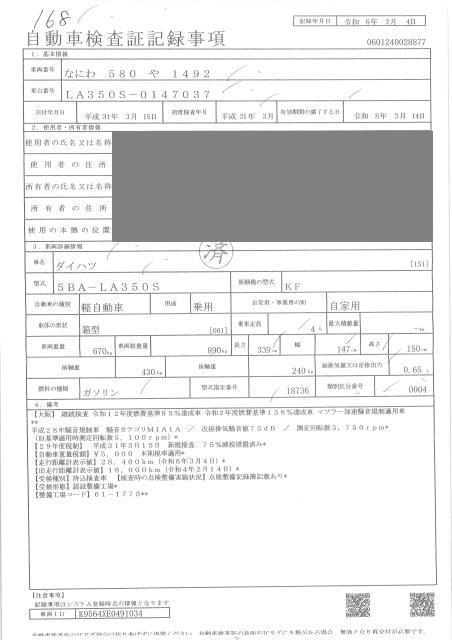 168
記録年月日 令和 6年 3月 4日
自動車検査証記録事項
0601240028877
1. 基本情報
車両番号 なにわ 580 や 1492
車台番号 LA350S-0147037
交付年月日 平成 31年 3月 15日 初度検査年月 平成 31年 3月 有効期間の満了する日 令和 8年 3月 14日
2. 使用者・所有者情報
使用者の氏名又は名称
使用者の住所
所有者の氏名又は名称
所有者の住所
使用の本拠の位置
3. 車両詳細情報
済
車名 ダイハツ [151]
型式 5BA-LA350S 原動機の型式 KF
自動車の種別 軽自動車 用途 乗用 自家用・事業用の別 自家用
車体の形状 箱型 [001] 乗車定員 4人 最大積載量 -kg
車両重量 670kg 車両総重量 890kg 長さ 339cm 幅 147cm 高さ 150cm
前軸重 430kg 後軸重 240kg 総排気量又は定格出力 0.65 L
燃料の種類 ガソリン 型式指定番号 18736 類別区分番号 0004
4. 備考
【大阪】 継続検査 令和12年度燃費基準85%達成車 令和2年度燃費基準138%達成車 マフラー加速騒音規制適用車
**
平成28年騒音規制車 騒音カテゴリM1A1A / 近接排気騒音値75dB / 測定回転数3,750rpm*
(旧基準適用時測定回転数5,100rpm)*
【29年度税制】 平成31年3月15日 新規検査 75%減税措置済み*
【自動車重量税額】¥5,000 本則税率適用*
【走行距離計表示値】28,400km(令和6年3月4日)*
【旧走行距離計表示値】18,000km(令和4年2月14日)*
【受検種別】持込検査車 【検査時の点検整備実施状況】点検整備記録簿記載あり*
【受検形態】認証整備工場*
【整備工場コード】61-1775**
【注意事項】
記録事項はシステム登録時点の情報となります
車両ID K9564XE0491034